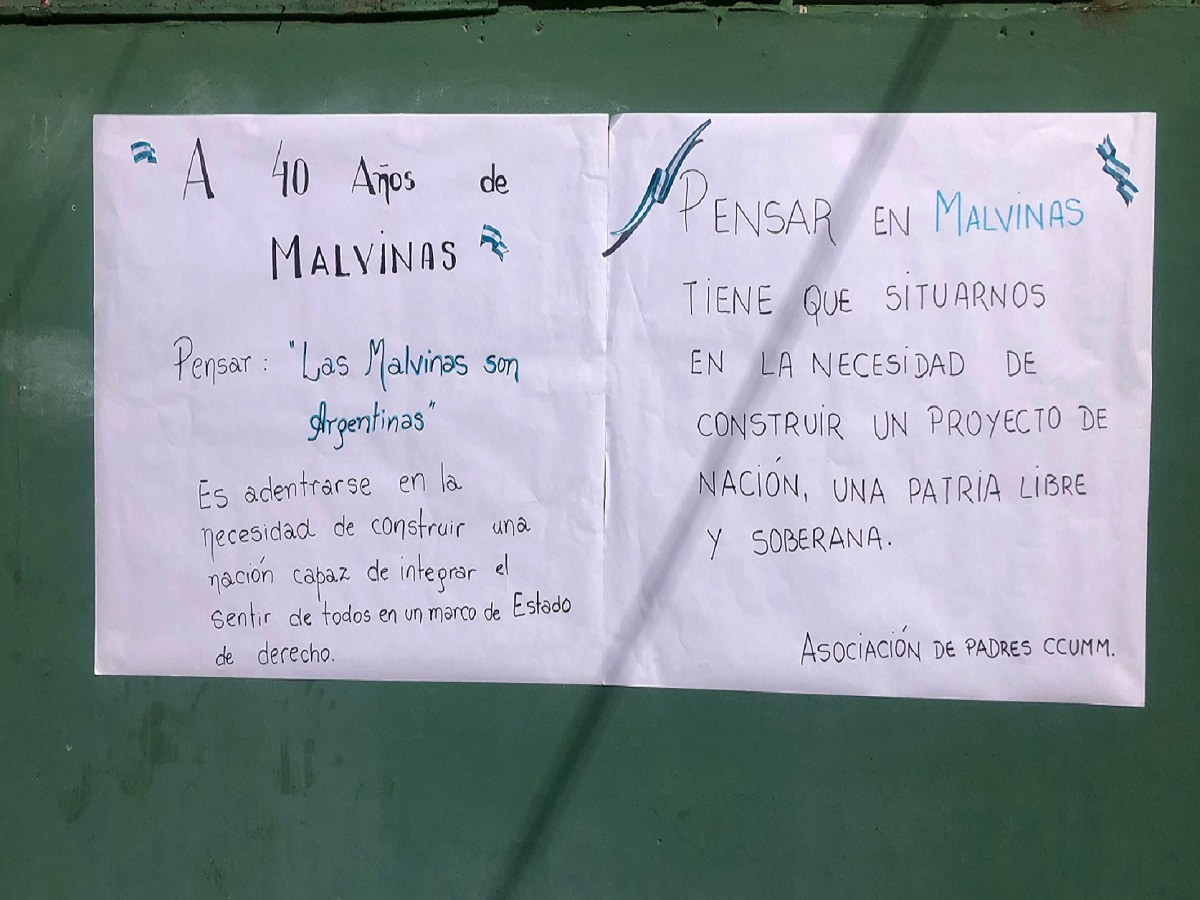 A 40 Años de
MALVINAS
Pensar: "Las Malvinas son
Argentinas"
Es adentrarse en la
necesidad de construir una
nación capaz de integrar el
sentir de todos en un marco de Estado
de derecho.
PENSAR EN MALVINAS
TIENE QUE SITUARNOS
EN LA NECESIDAD DE
CONSTRUIR UN PROYECTO DE
NACIÓN, UNA PATRIA LIBRE
Y SOBERANA.
ASOCIACIÓN DE PADRES CCUMM.